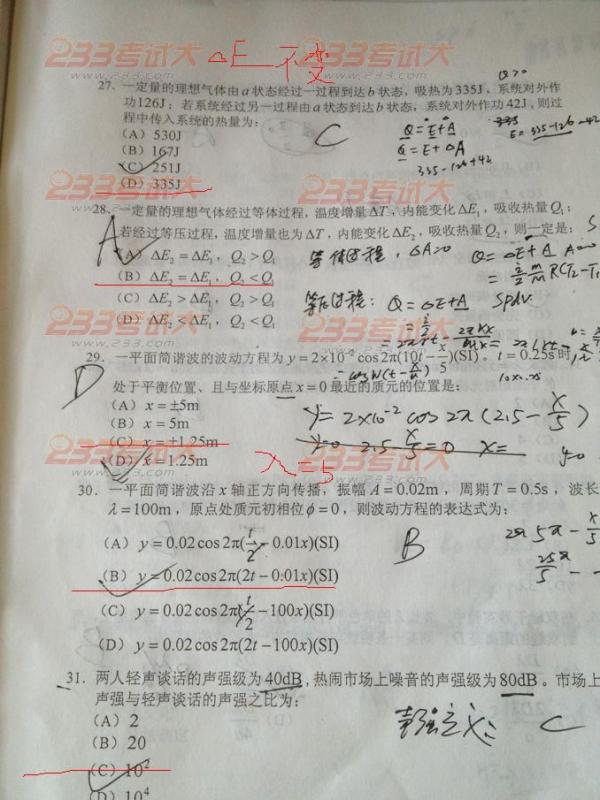 233考试大 233考试大
ΔE 不变
27. 一定量的理想气体由a状态经过一过程到达b状态,吸热为335J,系统对外作
功126J;若系统经过另一过程由a状态到达b状态,系统对外作功42J,则过
程中传入系统的热量为:
(A) 530J
(B) 167J
(C) 251J
(D) 335J
C
Q=E+A
Q=E+ΔA
335-126+42
233考试大 233考试大
28. 一定量的理想气体经过等体过程,温度增量ΔT,内能变化ΔE₁,吸收热量Q₁;
若经过等压过程,温度增量也为ΔT,内能变化ΔE₂,吸收热量Q₂,则一定是:
(A) ΔE₂=ΔE₁,Q₂>Q₁
(B) ΔE₂=ΔE₁,Q₂<Q₁
(C) ΔE₂>ΔE₁,Q₂>Q₁
(D) ΔE₂<ΔE₁,Q₂<Q₁
A
等体过程,ΔA=0
Q=ΔE+A
等压过程:Q=ΔE+A
Spdv.
233考试大 233考试大
29. 一平面简谐波的波动方程为y=2×10⁻²cos2π(10t-x/5)(SI)。t=0.25s时,
处于平衡位置、且与坐标原点x=0最近的质元的位置是:
(A) x=±5m
(B) x=5m
(C) x=±1.25m
(D) x=1.25m
D
y=2×10⁻²cos2π(2.5-x/5)
233考试大 233考试大
λ=5
30. 一平面简谐波沿x轴正方向传播,振幅A=0.02m,周期T=0.5s,波长
λ=100m,原点处质元初相位ϕ=0,则波动方程的表达式为:
(A) y=0.02cos2π(t/2-0.01x)(SI)
(B) y=0.02cos2π(2t-0.01x)(SI)
(C) y=0.02cos2π(t/2-100x)(SI)
(D) y=0.02cos2π(2t-100x)(SI)
B
31. 两人轻声谈话的声强级为40dB,热闹市场上噪音的声强级为80dB。市场上
声强与轻声谈话的声强之比为:
(A) 2
(B) 20
(C) 10²
(D) 10⁴
C